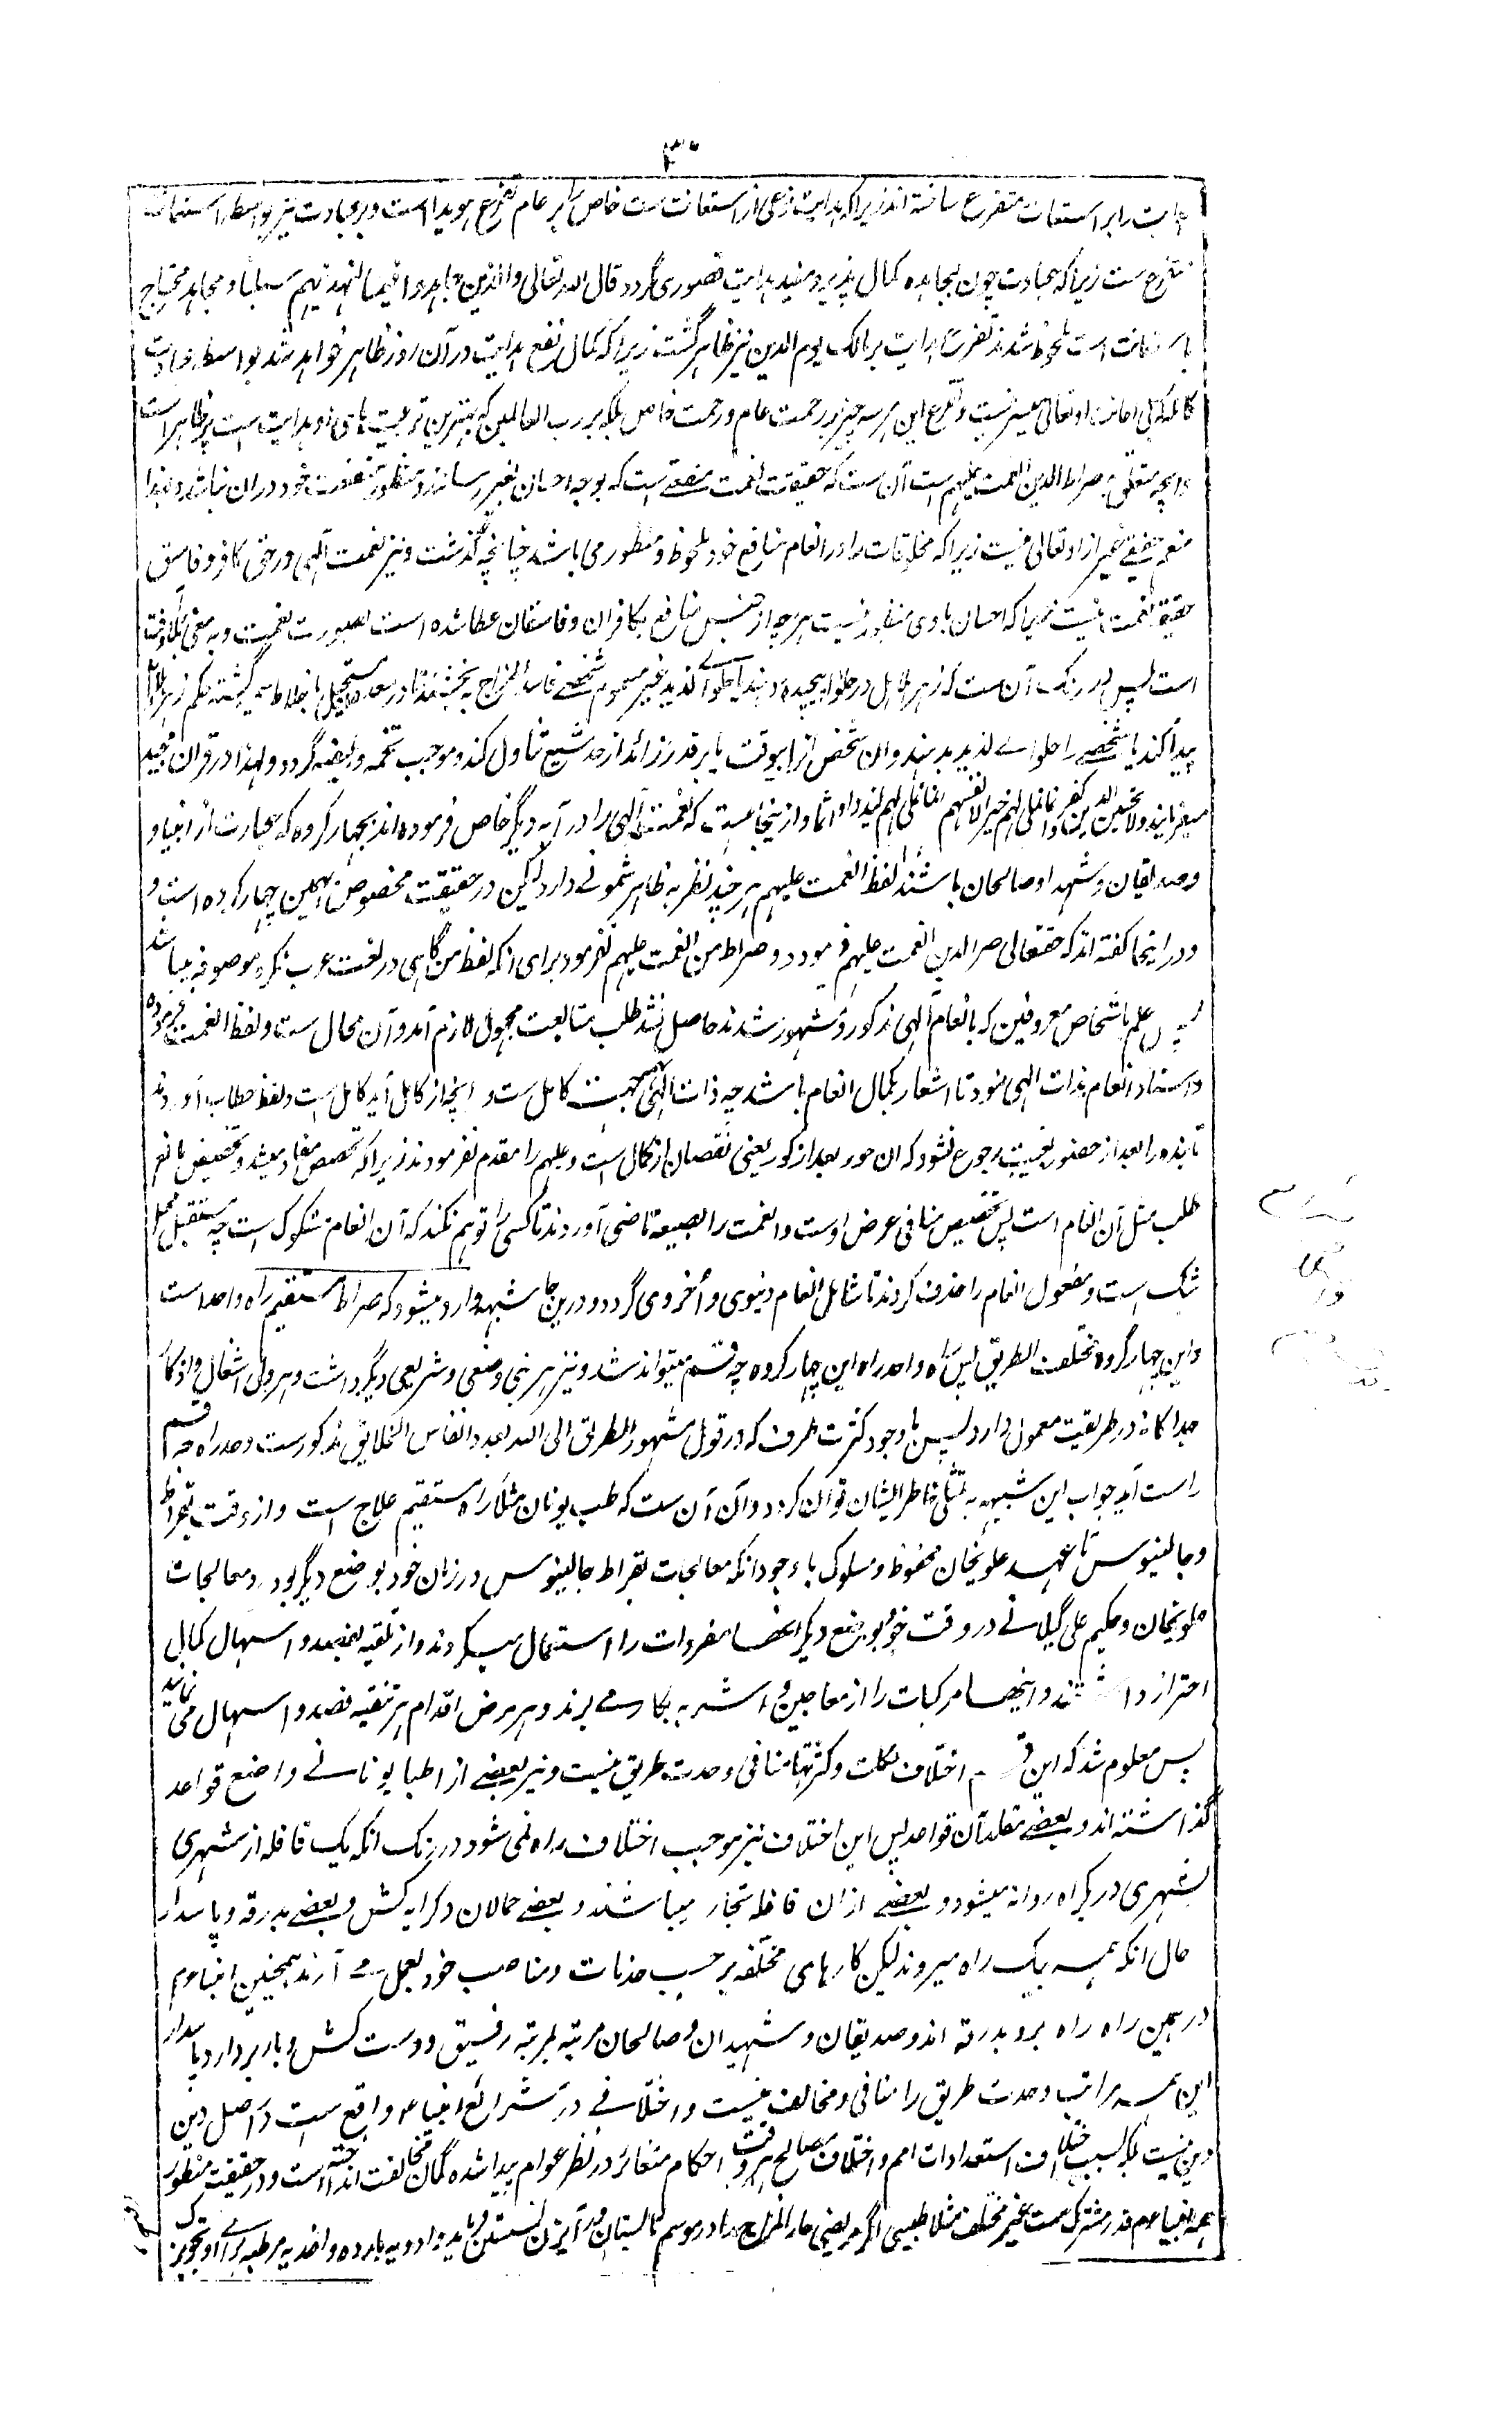 ۳۰
هدایت را بر استعانت متفرع ساخته اند زیرا که هدایت نوعی از استعانت ست خاص را بر عام تفرع هویدا است و بر عبادت نیز بواسطه استعانت
متفرع ست زیرا که عبادت چون بمجاهده کمال پذیرد مفید هدایت قصوری گردد قال الله تعالی والذین جاهدوا فینا لنهدینهم سبلنا و مجاهده محتاج
باستعانت است ملحوظ شد و تفرع هدایت بر مالک یوم الدین نیز ظاهر گشت زیرا که کمال نفع هدایت در آن روز ظاهر خواهد شد بواسطه عبادت
کامله که بی اعانت او تعالی میسر نیست و تفرع این هر سه چیز بر رحمت عام و رحمت خاص بلکه بر رب العالمین که بهترین تربیت های او هدایت است پر ظاهر است
و آنچه متعلق به صراط الذین انعمت علیهم است آن ست که حقیقت نعمت منفعتی است که بوجه احسان بغیر رسانند و منظور منفعت خود در ان نباشد و لهذا
منعم حقیقے غیر از او تعالی نیست زیرا که مخلوقات را در انعام منافع خود ملحوظ و منظور می باشد چنانچه گذشت و نیز نعمت الهی در حق کافر و فاسق
حقیقة نعمت نیست زیرا که احسان با وی منظور نیست هر چه از جنس منافع بکافران و فاسقان عطا شده است بصورت نعمت و به معنی بلا و آفت
است پس در رنگ آن ست که زهر هلاهل در حلوا پیچیده دهند یا حلوای لذیذ غیر مسموم شخصے فاسد المزاج به بخشند تا در معده مستحیل باخلاط سمیه گشته حکم زهر هلاهل
پیدا کند یا شخصے را حلوائے لذیذ بدهند و ان شخص انرا بیوقت یا بر قدر زائد از حد شبع تناول کند و موجب تخمه و هیضه گردد و لهذا در قران مجید
میفرمایند ولا یحسبن الذین کفروا انما نملی لهم خیر لانفسهم انما نملی لهم لیزدادوا اثما و از ینجاست که نعمت الهی را در آیه دیگر خاص فرموده اند بچهار گروه که عبارت از انبیا و
و صدیقان و شهدا و صالحان باشند لفظ انعمت علیهم هر چند نظر به ظاهر شمولے دارد لیکن در حقیقت مخصوص بهمین چهار گروه است و
و در اینجا گفته اند که حقتعالی صراط الذین انعمت علیهم فرمود و صراط من انعمت علیهم نفرمود برای انکه لفظ من گاهی در لغت عرب نکره موصوفه میباشد
پس علم باشخاص معروفین که بانعام الهی مذکور و مشهور شدند حاصل نشد طلب متابعت مجهول لازم آمد و آن محال ست و لفظ انعمت فرموده
و اسناد انعام بذات الهی نمود تا اشعار بکمال انعام باشد چه ذات الهی بهمه جهت کامل ست و انچه از کامل آید کامل است و لفظ خطاب آوردند
تا بنده را بعد از حضور بغیبت رجوع نشود که ان حور بعد از کور یعنی نقصان از کمال است و علیهم را مقدم نفرمودند زیرا که تخصیص مفاد میشد و تخصیص مانع
طلب مثل آن انعام است پس تخصیص منافی عرض اوست و انعمت را بصیغه ماضی آوردند تا کسی را توهم نکند که آن انعام مشکوک است چه مستقبل محل
شک است و مفعول انعام را حذف کردند تا شامل انعام دنیوی و اُخروی گردد و درین جا شبهه وارد میشود که صراط مستقیم راه واحد است
و این چهار گروه مختلف الطریق پس راه واحد راه این چهار گروه چه قسم میتواند شد و نیز هر نبی وضعی و شریعتی دیگر داشت و هر ولی اشغال و اذکار
جداگانه در طریقت معمول دارد پس با وجود کثرت طرف که در قول مشهور الطرق الی الله بعدد انفاس الخلائق مذکورست وحدت راه چه قسم
راست آید جواب این شبهه به تمثیلی خاطر نشان توان کرد و آن آن ست که طب یونان مثلا راه مستقیم علاج است و از وقت بقراط
و جالینوس تا عهد علویخان محفوظ و مسلوک با وجود انکه معالجات بقراط جالینوس در زمان خود بوضع دیگر بود و معالجات
علویخان و حکیم علی گیلانے در وقت خود بوضع دیگر انها مفردات را استعمال میکردند و از تنقیه بفصد و اسهال کمال
احتراز داشتند و اینها مرکبات را از معاجین و اشربه بکار مے برند و هر مرض اقدام بر تنقیه فصد و اسهال می نمایند
پس معلوم شد که این قسم اختلاف ملکات و کثرتها منافی وحدت طریق نیست و نیز بعضے از اطبا یونانے واضع قواعد
گذاشته اند و بعضے مقلد آن قواعد پس این اختلاف نیز موجب اختلاف راه نمی شود در رنگ انکه یک قافله از شهری
بشهری در یکراه روانه میشود و بعضے از ان قافله تجار میباشند و بعضے حمالان و کرایه کش و بعضے بدرقه و پاسدار
حال انکه همه بیک راه میروند لیکن کارهای مختلفه بر حسب خدمات و مناصب خود بعمل مے آرند همچنین انبیاء هم
در همین راه راه برو بدرقه اند و صدیقان و شهیدان و صالحان مرتبه بمرتبه رفیق و دوست کش و باربردار و پاسدار
این همه مراتب وحدت طریق را منافی و مخالف نیست و اختلافے در شرائع انبیاء واقع است در اصل دین
و دین نیست بلکه بسبب اختلاف استعدادات امم و اختلاف مصالح هر وقت احکام متغائر در نظر عوام پیدا شده گمان مخالفت انداخته است و در حقیقت منظور
همه انبیاء هم قدر مشترک ست غیر مختلف مثلا طبیبی اگر مریضی حار المزاج را در موسم تابستان در آبزن نشستن فرماید و ادویه بارده و اغذیه مرطبه برائے او تجویز